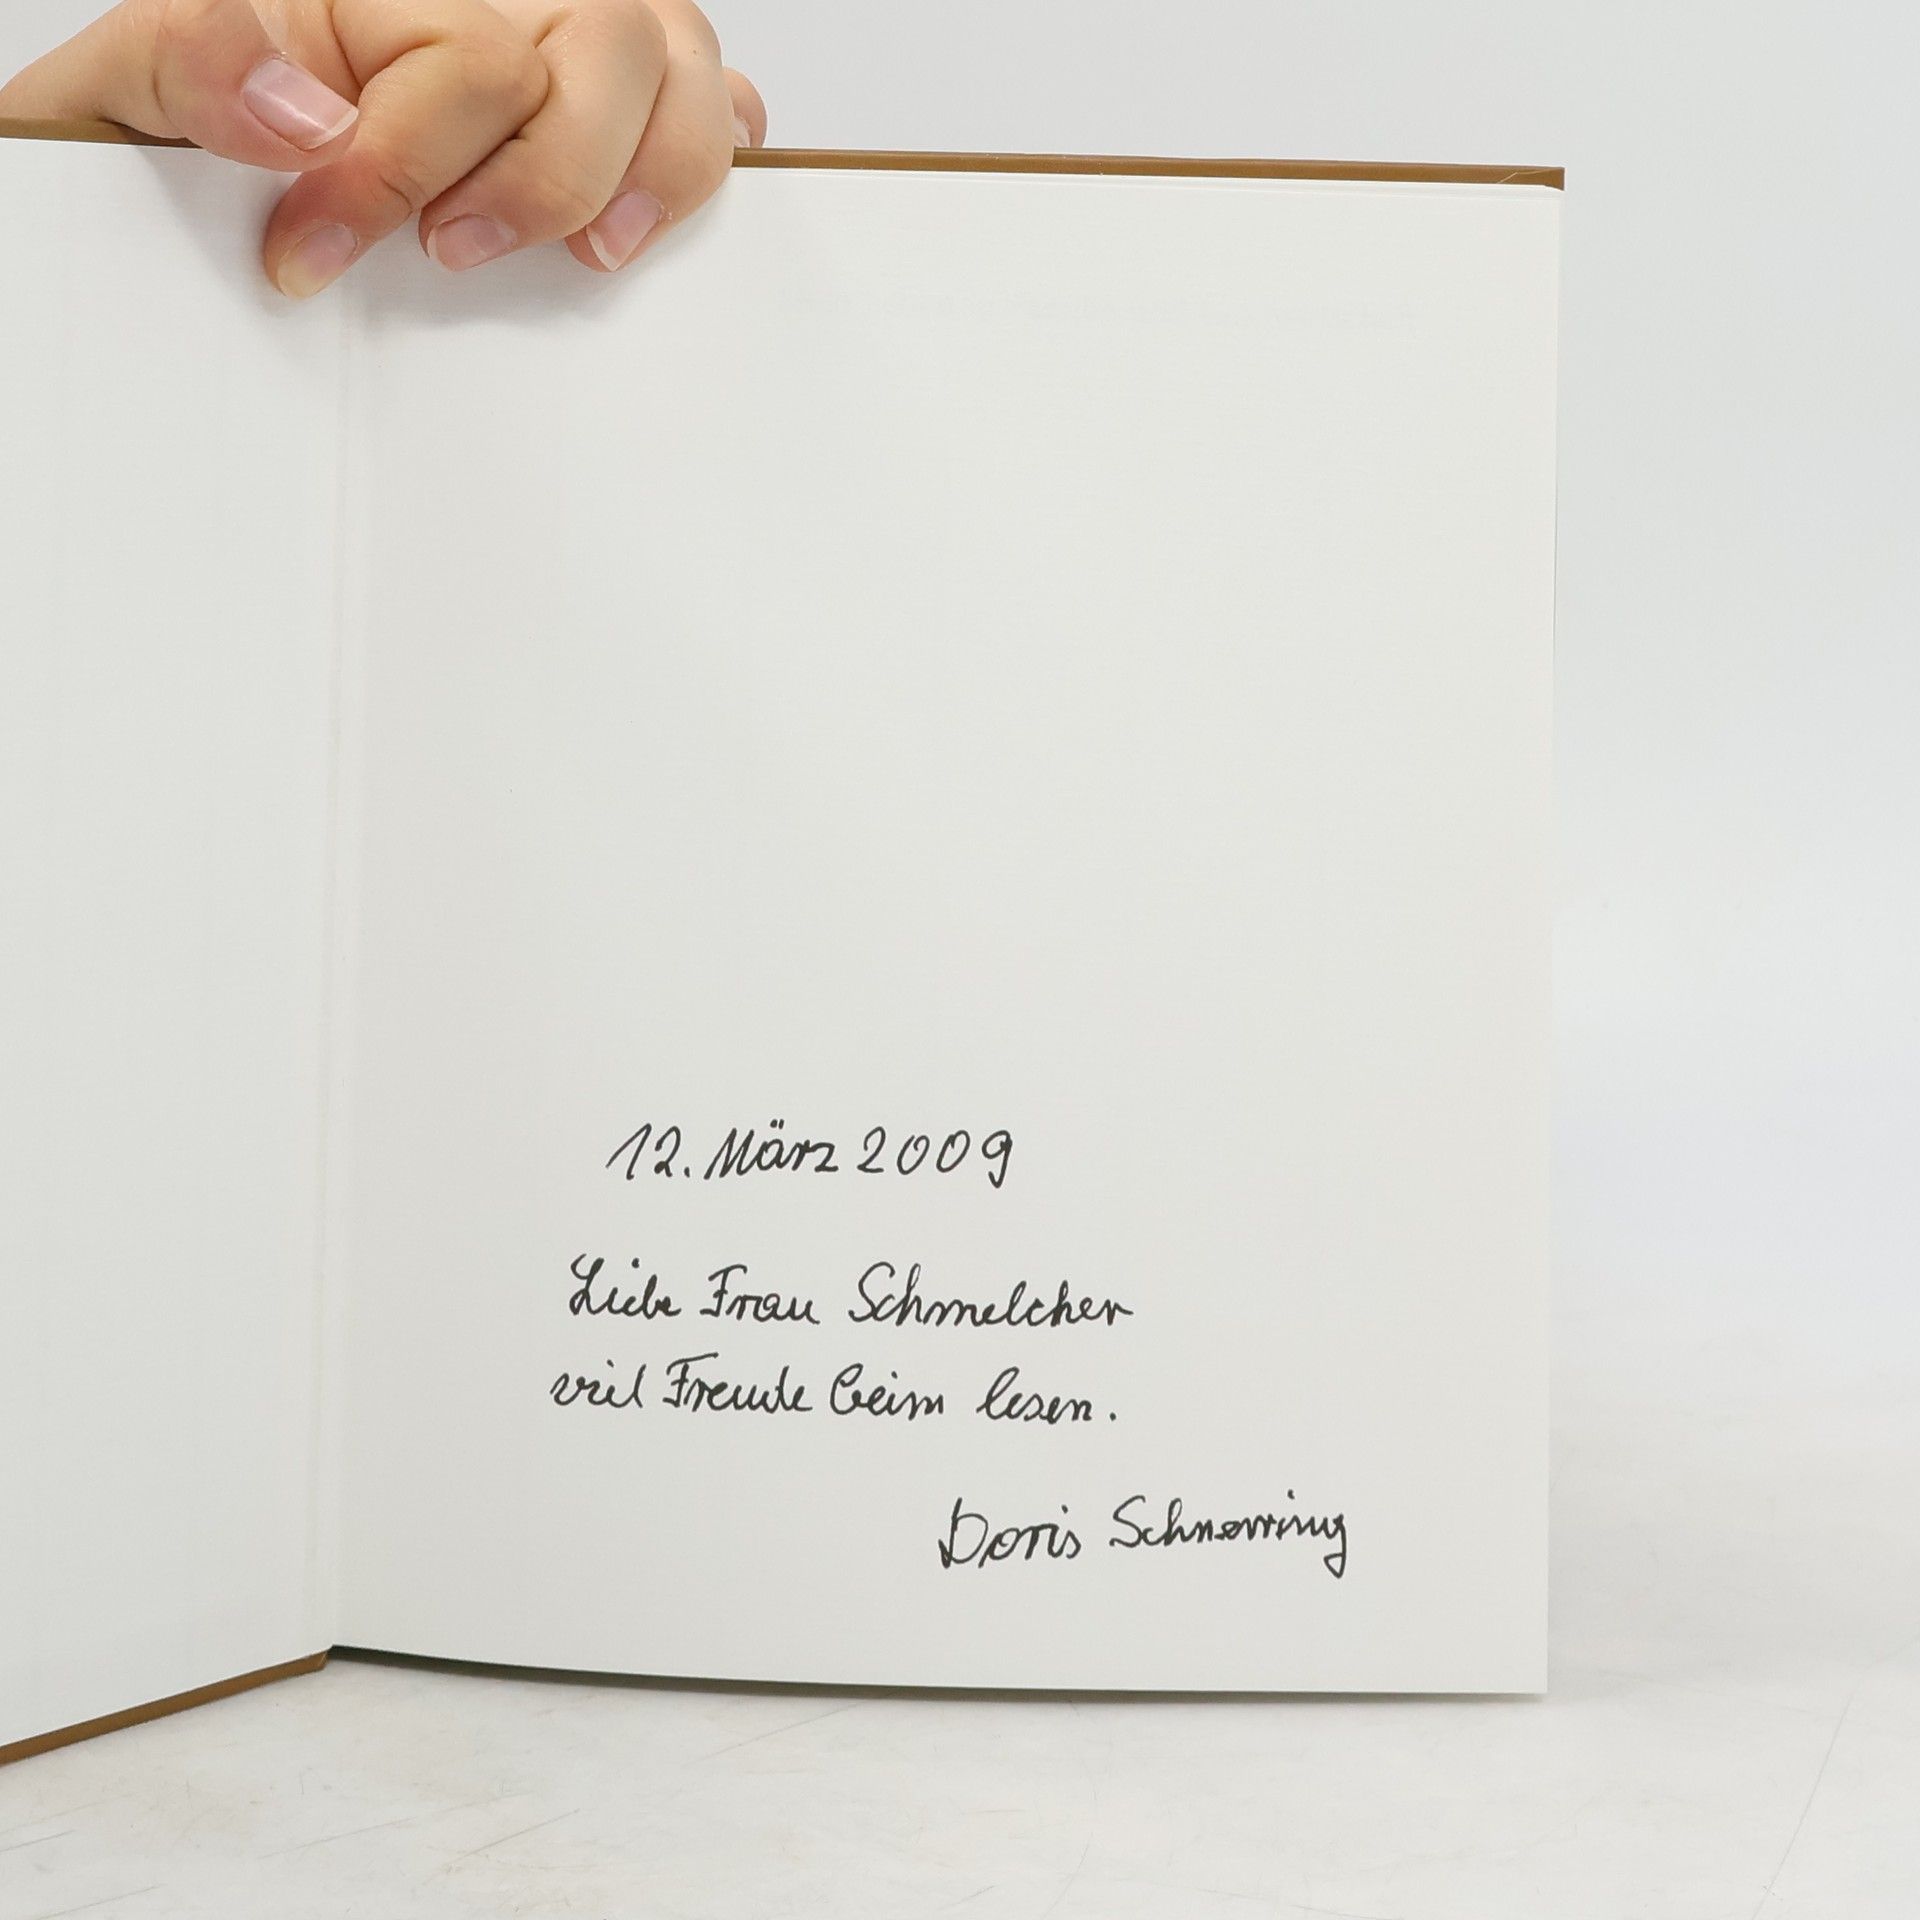 12. März 2009
Liebe Frau Schmelcher
viel Freude beim lesen.
Doris Schnerring